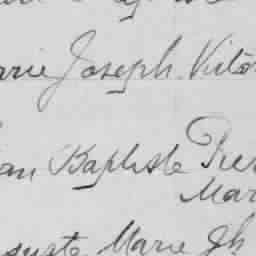 arie Joseph Victo
an Baptiste Pier
Mar
guste Marie Jh